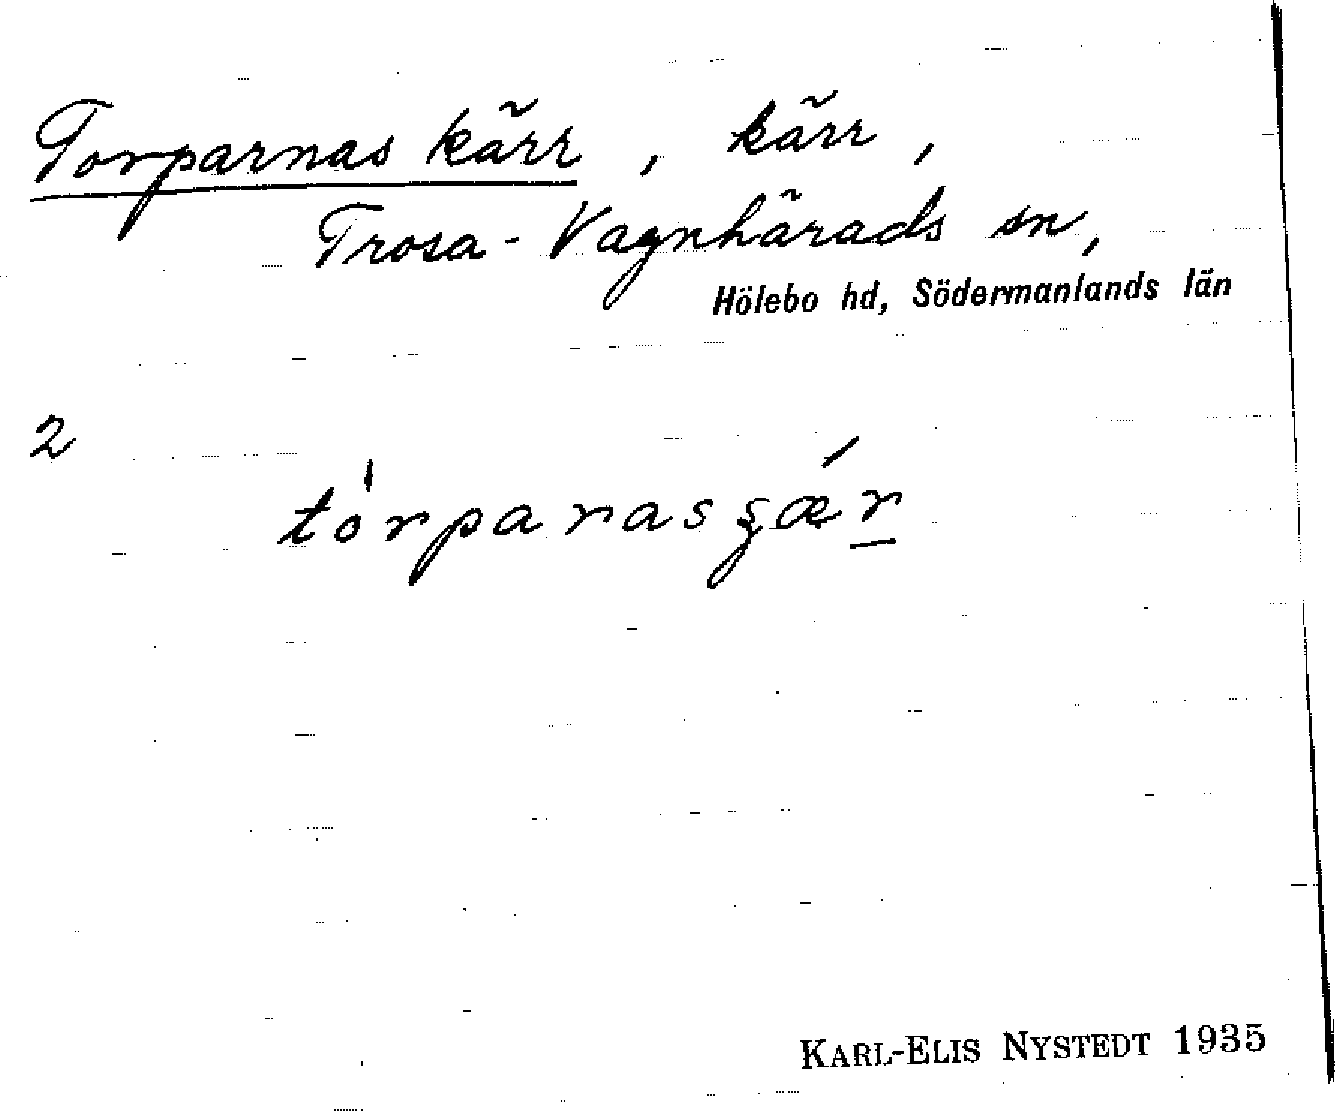 Torparnas kärr, kärr,
Trosa-Vagnhärads sn,
Hölebo hd, Södermanlands län
2
tórparasʂǽr
KARL-ELIS NYSTEDT 1935